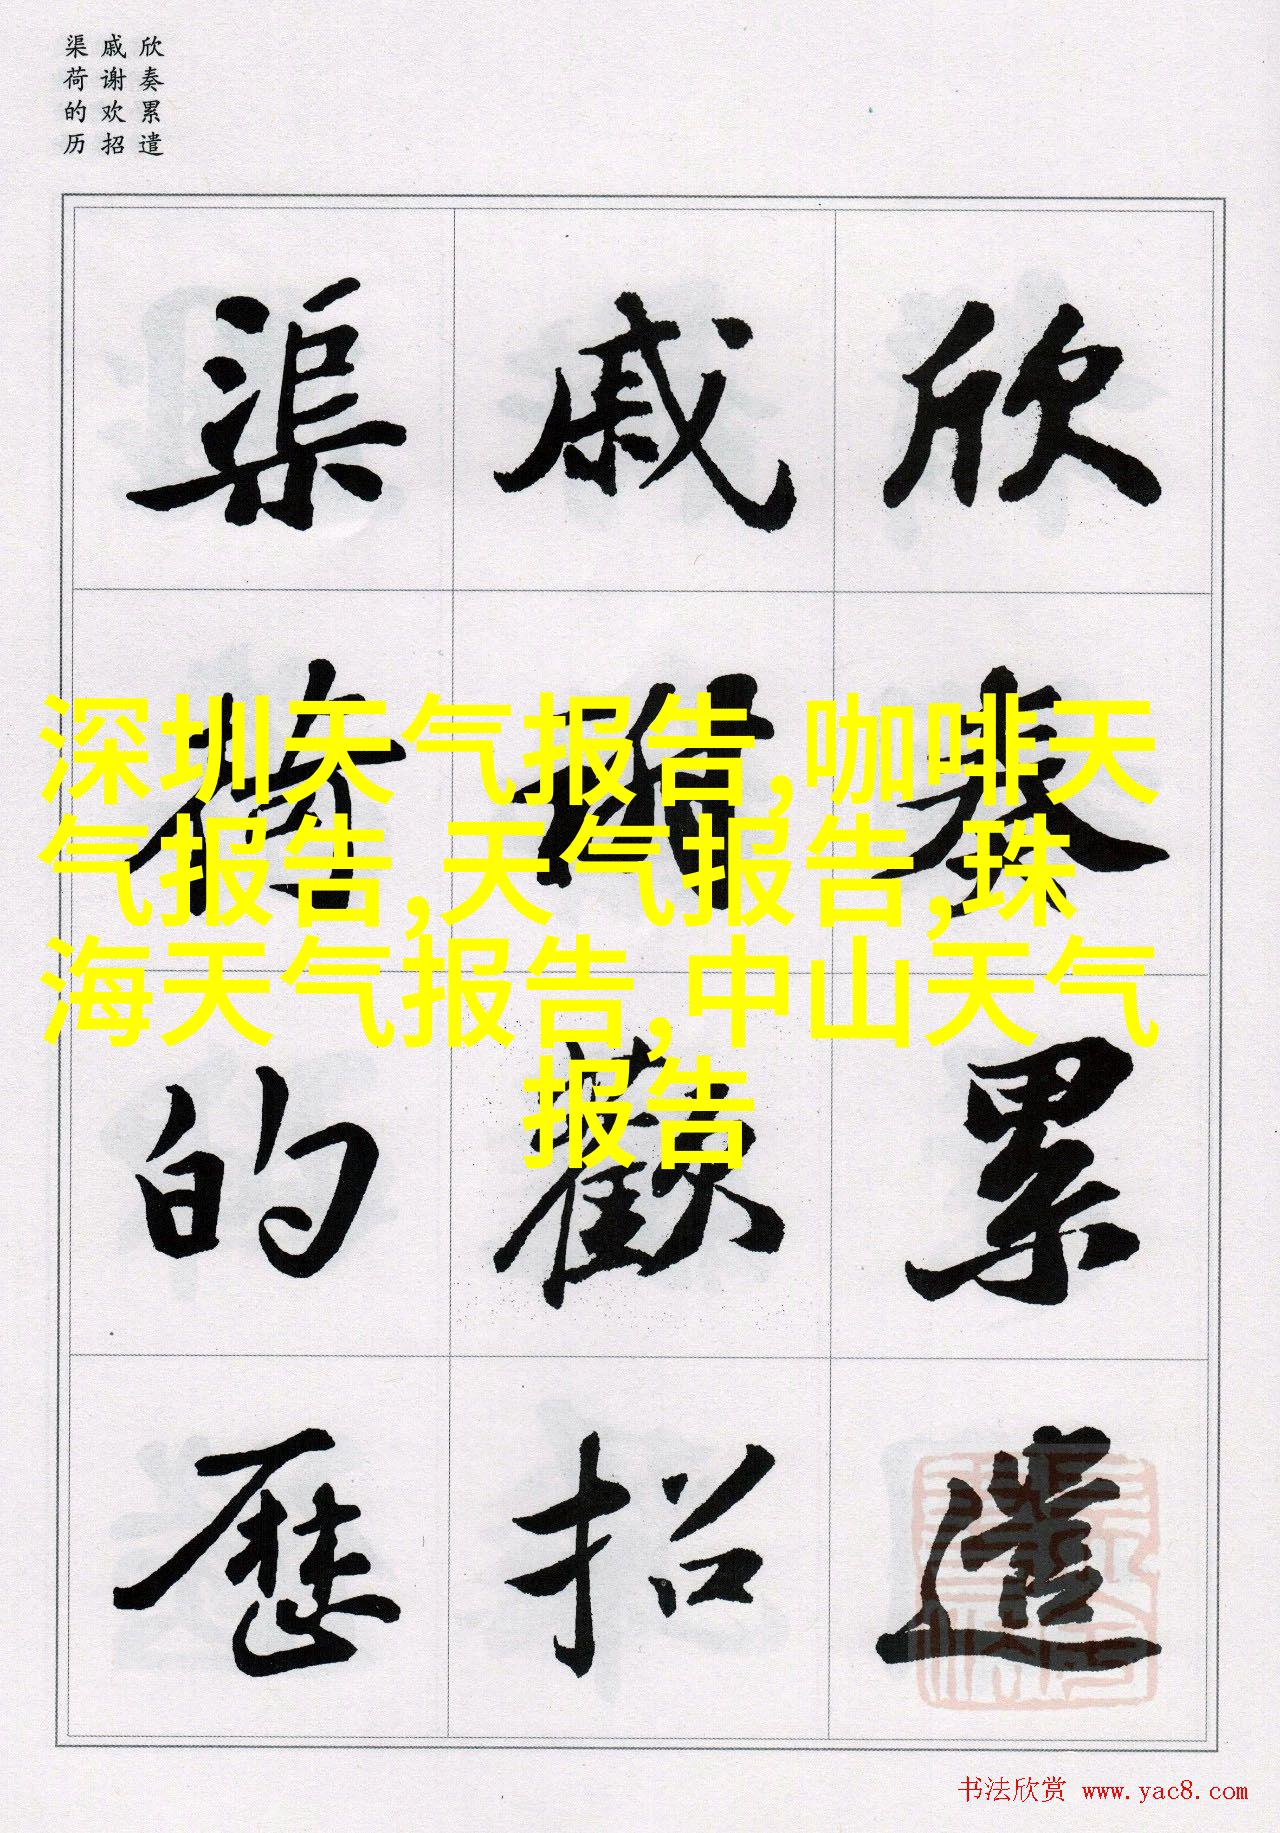 欣奏累遣
戚谢欢招
渠荷的历
欣奏累遣
戚謝歡招
渠荷的歷
深圳天气报告,咖啡天
气报告,天气报告,珠
海天气报告,中山天气
报告
书法欣赏 www.yac8.com